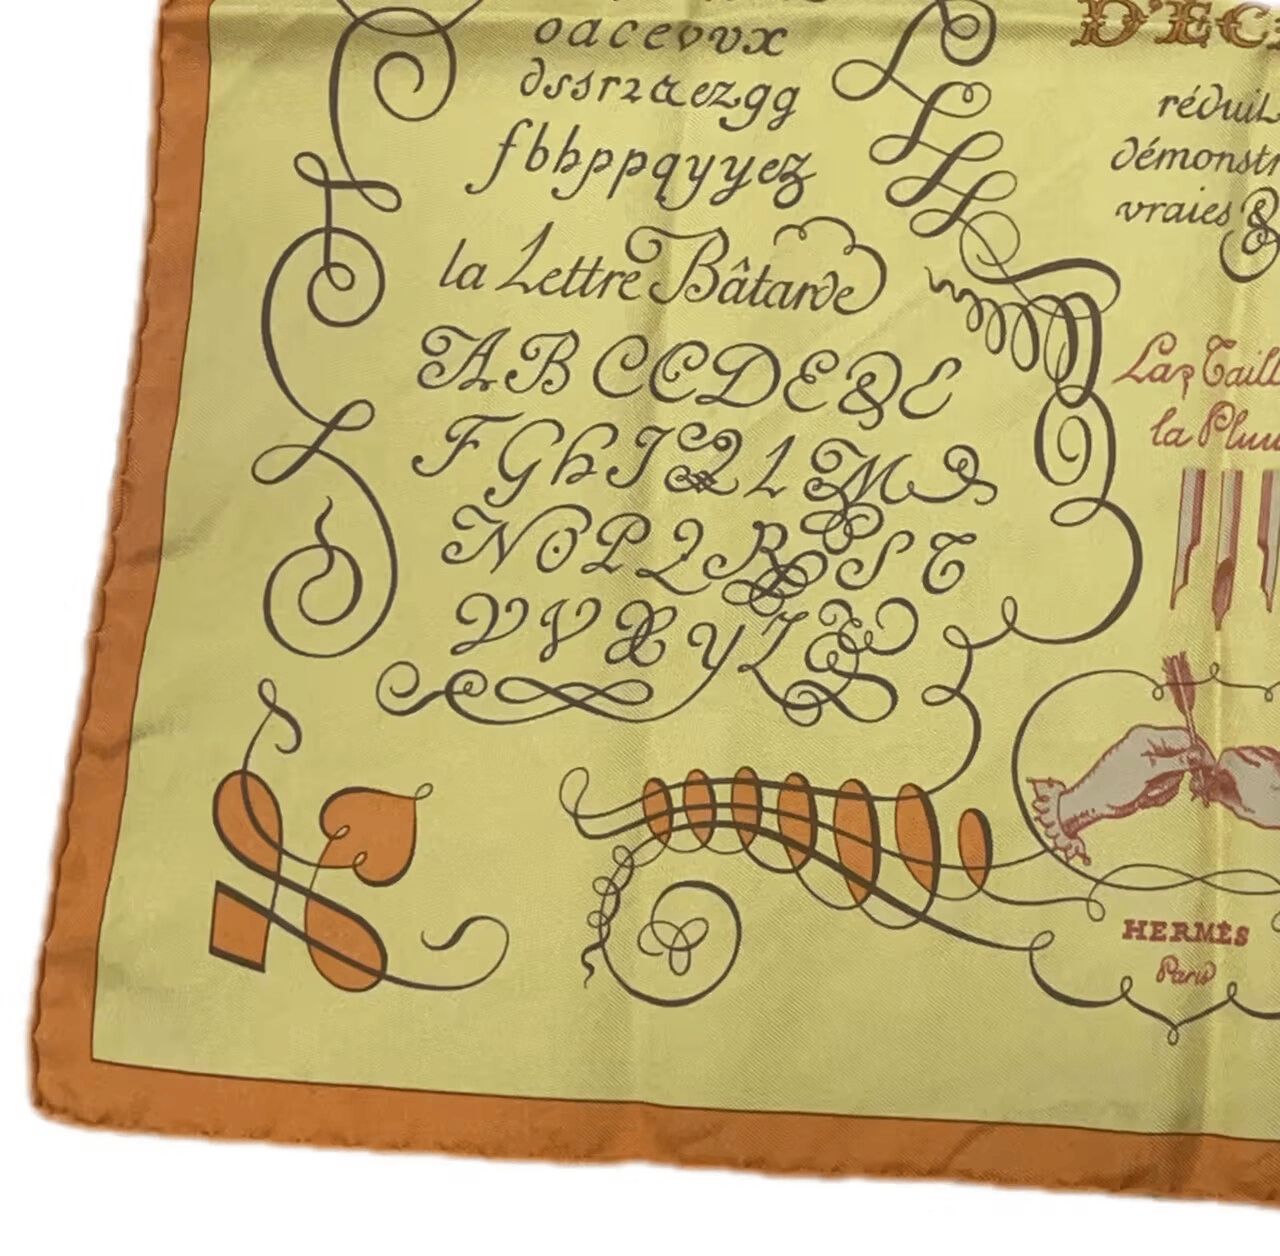 oaceovx
dssr2aezgg
fbhppqyyez
la Lettre Bâtarde
A B C C D E & E
F G h I 2 L M
N O P Q R S T
V V X Y Z
D'EC
réduit
démonstr
vraies &
La Taill
la Plum
HERMÈS
Paris